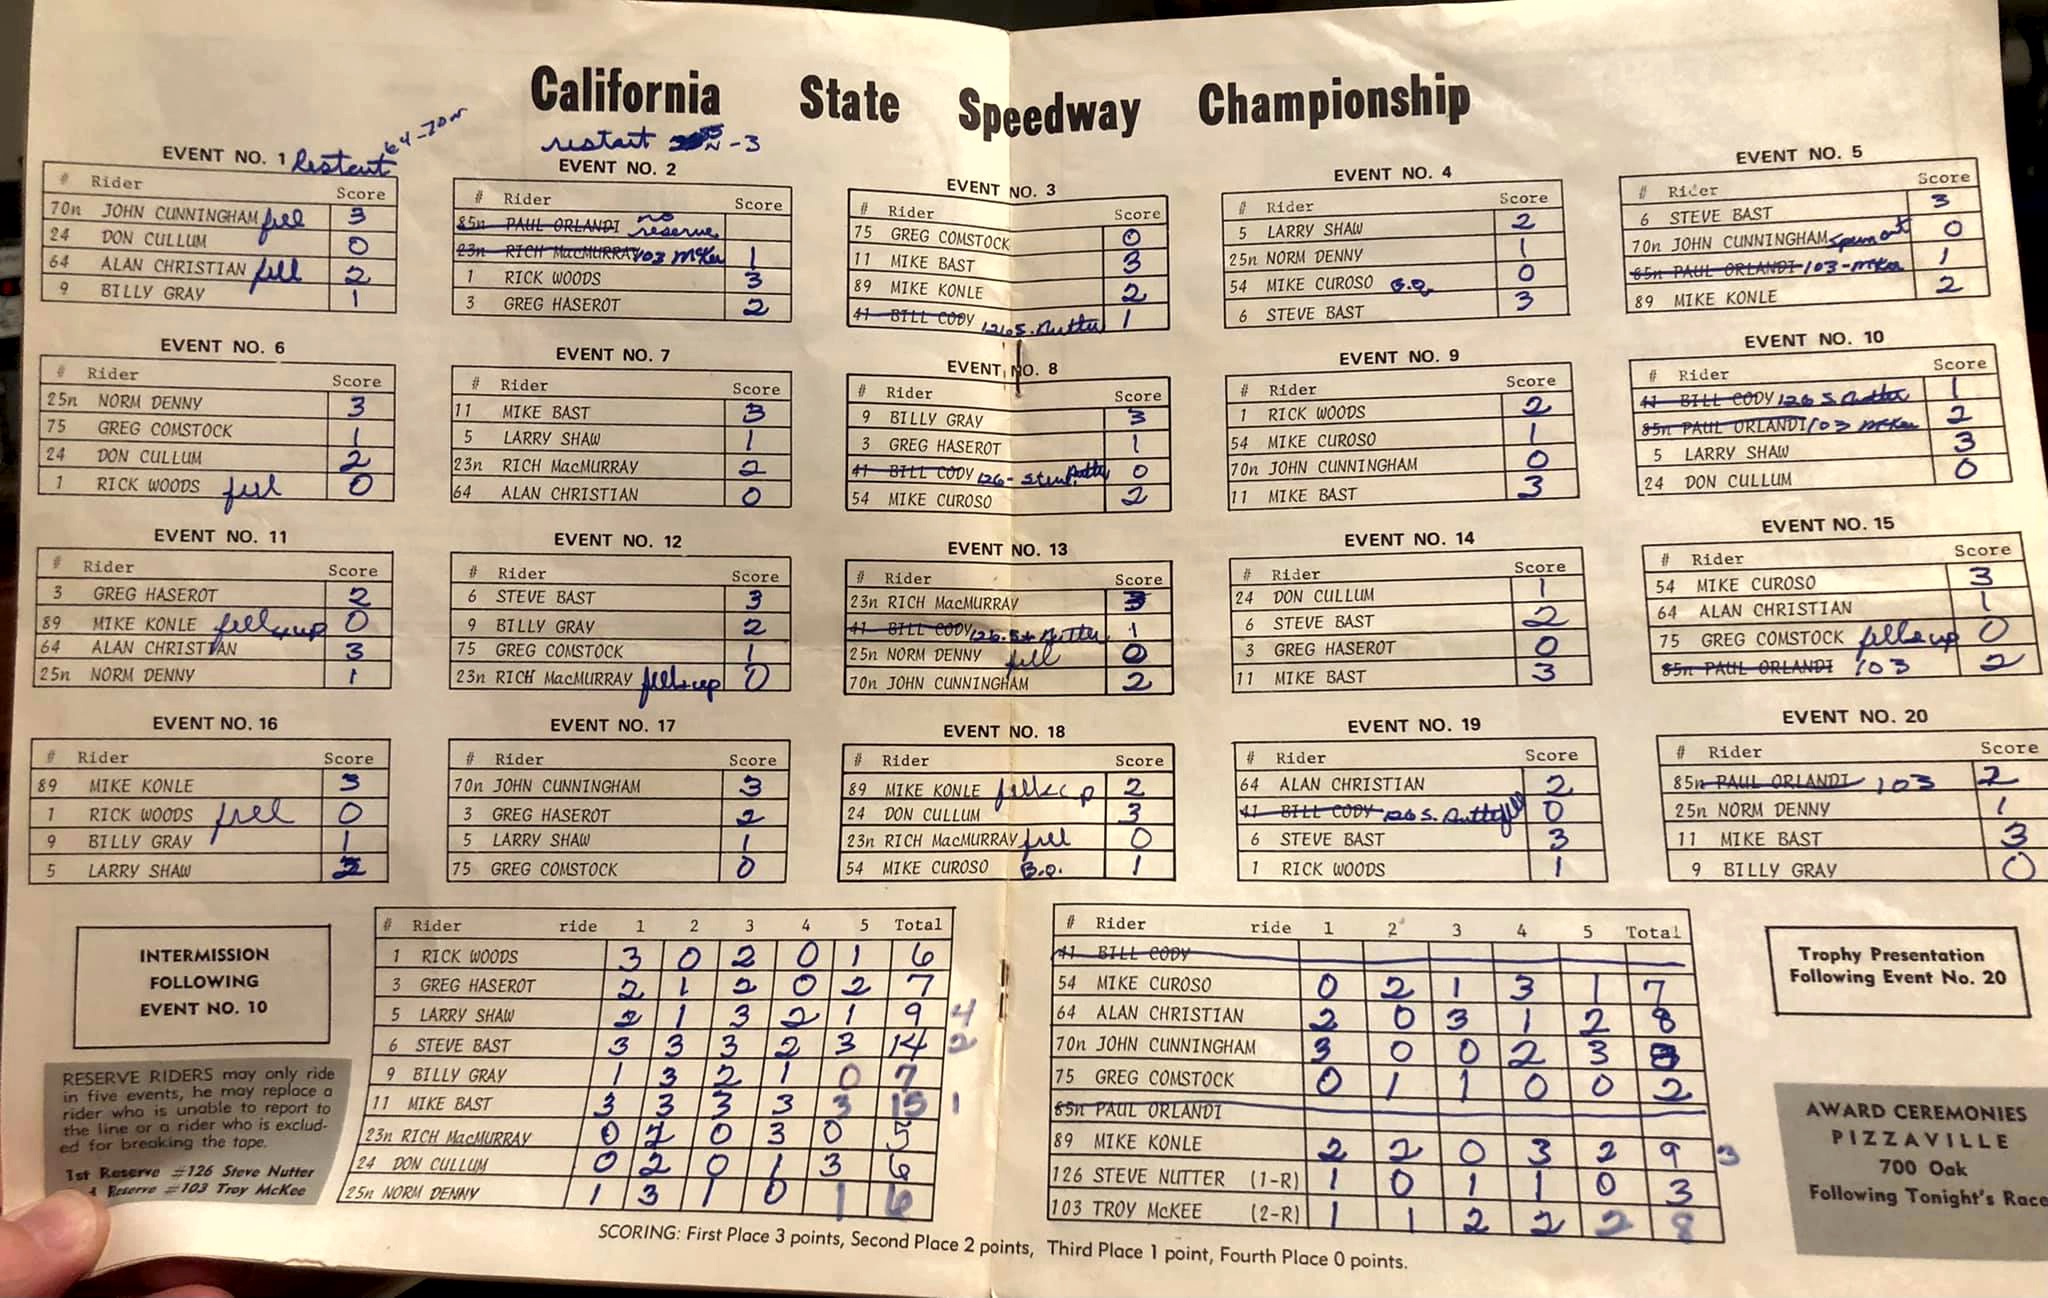 California State Speedway Championship
EVENT NO. 1 Restart 64-70n
# Rider Score
70n JOHN CUNNINGHAM fell 3
24 DON CULLUM 0
64 ALAN CHRISTIAN fell 2
9 BILLY GRAY 1
restart N -3
EVENT NO. 2
# Rider Score
85n PAUL ORLANDI no reserve
23n RICH MacMURRAY 103 McKee 1
1 RICK WOODS 3
3 GREG HASEROT 2
EVENT NO. 3
# Rider Score
75 GREG COMSTOCK 0
11 MIKE BAST 3
89 MIKE KONLE 2
41 BILL CODY 126 S. Nutter 1
EVENT NO. 4
# Rider Score
5 LARRY SHAW 2
25n NORM DENNY 1
54 MIKE CUROSO B.O. 0
6 STEVE BAST 3
EVENT NO. 5
# Rider Score
6 STEVE BAST 3
70n JOHN CUNNINGHAM Spun out 0
85n PAUL ORLANDI 103-McKee 1
89 MIKE KONLE 2
EVENT NO. 6
# Rider Score
25n NORM DENNY 3
75 GREG COMSTOCK 1
24 DON CULLUM 2
1 RICK WOODS fell 0
EVENT NO. 7
# Rider Score
11 MIKE BAST 3
5 LARRY SHAW 1
23n RICH MacMURRAY 2
64 ALAN CHRISTIAN 0
EVENT NO. 8
# Rider Score
9 BILLY GRAY 3
3 GREG HASEROT 1
41 BILL CODY 126- Steve Nutter 0
54 MIKE CUROSO 2
EVENT NO. 9
# Rider Score
1 RICK WOODS 2
54 MIKE CUROSO 1
70n JOHN CUNNINGHAM 0
11 MIKE BAST 3
EVENT NO. 10
# Rider Score
41 BILL CODY 126 S. Nutter 1
85n PAUL ORLANDI 103 McKee 2
5 LARRY SHAW 3
24 DON CULLUM 0
EVENT NO. 11
# Rider Score
3 GREG HASEROT 2
89 MIKE KONLE fell & up 0
64 ALAN CHRISTIAN 3
25n NORM DENNY 1
EVENT NO. 12
# Rider Score
6 STEVE BAST 3
9 BILLY GRAY 2
75 GREG COMSTOCK 1
23n RICH MacMURRAY fell & up 0
EVENT NO. 13
# Rider Score
23n RICH MacMURRAY 3
41 BILL CODY 126. St. Nutter 1
25n NORM DENNY fell 0
70n JOHN CUNNINGHAM 2
EVENT NO. 14
# Rider Score
24 DON CULLUM 1
6 STEVE BAST 2
3 GREG HASEROT 0
11 MIKE BAST 3
EVENT NO. 15
# Rider Score
54 MIKE CUROSO 3
64 ALAN CHRISTIAN 1
75 GREG COMSTOCK fell & up 0
85n PAUL ORLANDI 103 2
EVENT NO. 16
# Rider Score
89 MIKE KONLE 3
1 RICK WOODS fell 0
9 BILLY GRAY 1
5 LARRY SHAW 2
EVENT NO. 17
# Rider Score
70n JOHN CUNNINGHAM 3
3 GREG HASEROT 2
5 LARRY SHAW 1
75 GREG COMSTOCK 0
EVENT NO. 18
# Rider Score
89 MIKE KONLE fell & up 2
24 DON CULLUM 3
23n RICH MacMURRAY fell 0
54 MIKE CUROSO B.O. 1
EVENT NO. 19
# Rider Score
64 ALAN CHRISTIAN 2
41 BILL CODY 126 S. Nutter fell 0
6 STEVE BAST 3
1 RICK WOODS 1
EVENT NO. 20
# Rider Score
85n PAUL ORLANDI 103 2
25n NORM DENNY 1
11 MIKE BAST 3
9 BILLY GRAY 0
INTERMISSION
FOLLOWING
EVENT NO. 10
RESERVE RIDERS may only ride
in five events, he may replace a
rider who is unable to report to
the line or a rider who is exclud-
ed for breaking the tape.
1st Reserve #126 Steve Nutter
Reserve #103 Troy McKee
# Rider ride 1 2 3 4 5 Total
1 RICK WOODS 3 0 2 0 1 6
3 GREG HASEROT 2 1 2 0 2 7
5 LARRY SHAW 2 1 3 2 1 9 4
6 STEVE BAST 3 3 3 2 3 14 2
9 BILLY GRAY 1 3 2 1 0 7
11 MIKE BAST 3 3 3 3 3 15 1
23n RICH MacMURRAY 0 2 0 3 0 5
24 DON CULLUM 0 2 0 1 3 6
25n NORM DENNY 1 3 1 0 1 6
# Rider ride 1 2 3 4 5 Total
41 BILL CODY
54 MIKE CUROSO 0 2 1 3 1 7
64 ALAN CHRISTIAN 2 0 3 1 2 8
70n JOHN CUNNINGHAM 3 0 0 2 3 8
75 GREG COMSTOCK 0 1 1 0 0 2
85n PAUL ORLANDI
89 MIKE KONLE 2 2 0 3 2 9 3
126 STEVE NUTTER (1-R) 1 0 1 1 0 3
103 TROY McKEE (2-R) 1 1 2 2 2 8
Trophy Presentation
Following Event No. 20
AWARD CEREMONIES
PIZZAVILLE
700 Oak
Following Tonight's Race
SCORING: First Place 3 points, Second Place 2 points, Third Place 1 point, Fourth Place 0 points.